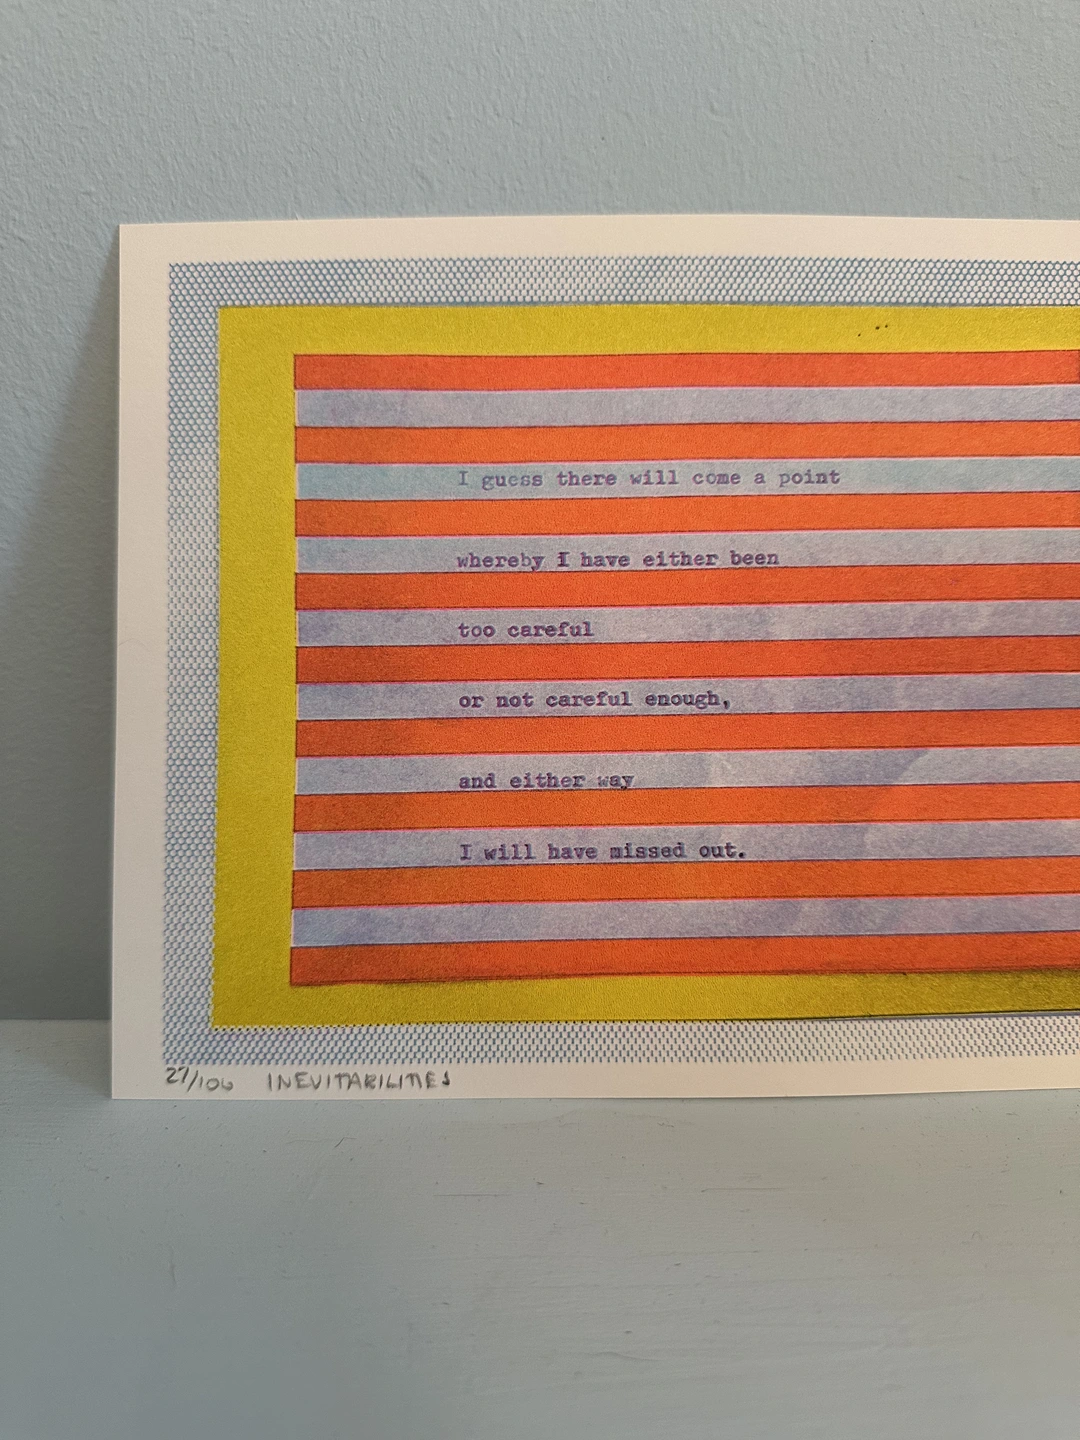 I guess there will come a point
whereby I have either been
too careful
or not careful enough,
and either way
I will have missed out.
27/106 INEVITABILITIES